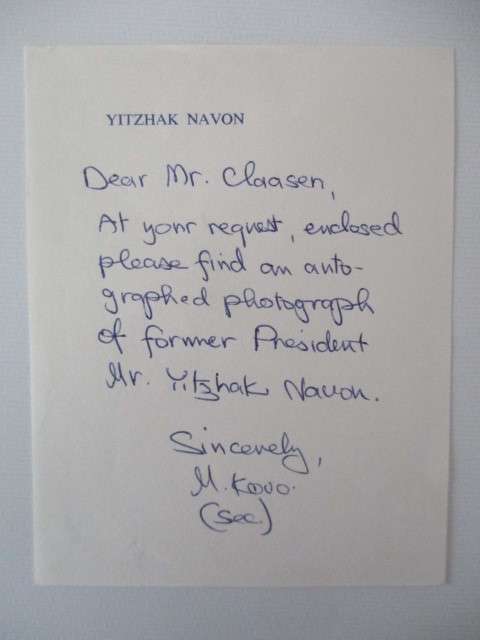 YITZHAK NAVON
Dear Mr. Claasen,
At your request, enclosed
please find an auto-
graphed photograph
of former President
Mr. Yitzhak Navon.
Sincerely,
M. Kovo.
(Sec.)